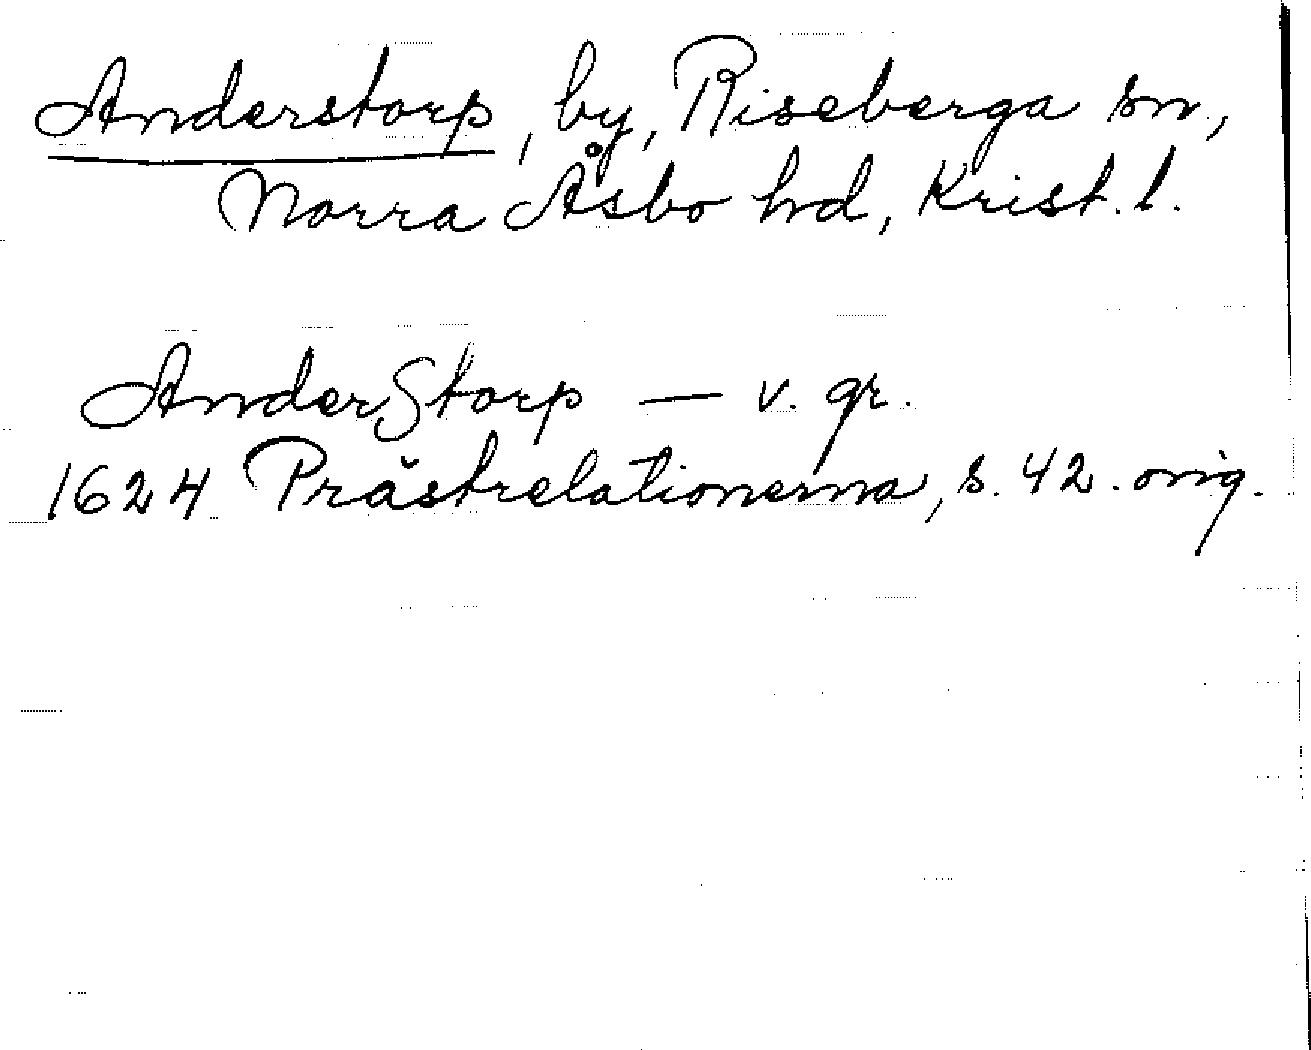 Anderstorp, by, Riseberga sn.,
Norra Åsbo hd, Krist. l.
AnderStorp — v. gr.
1624 Prästrelationerna, s. 42. orig.